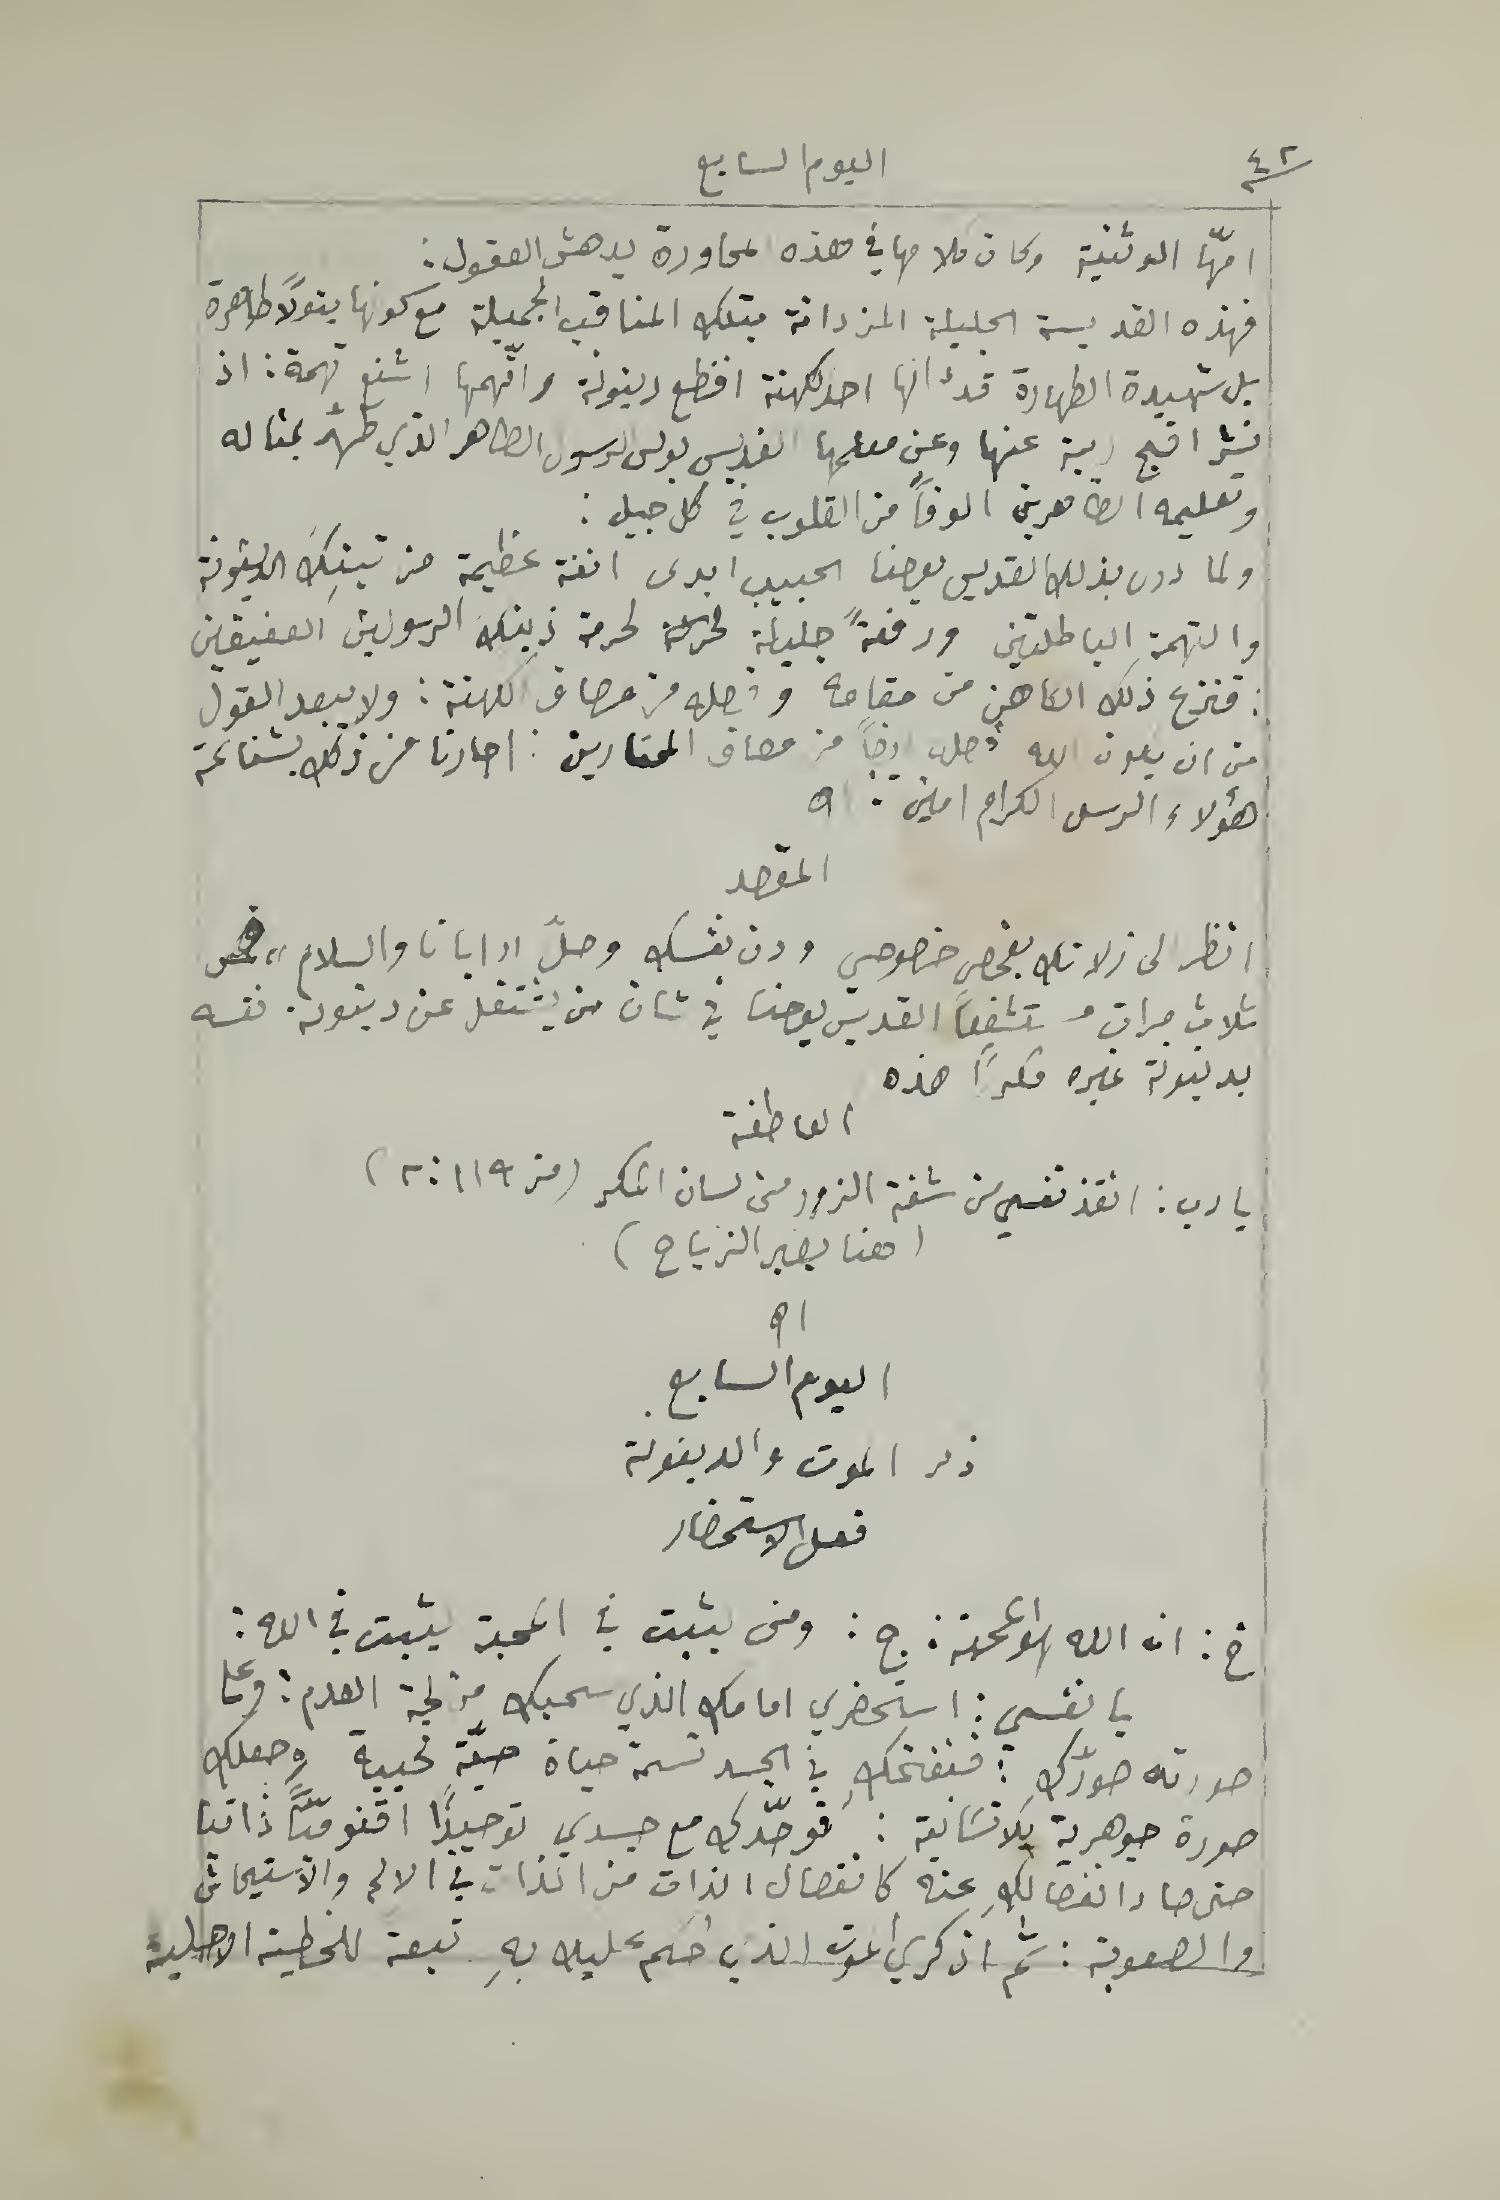 ٤٢
اليوم السابع
امّها الوثنية وكان كلامها في هذه المحاورة يدهش العقول:
فهذه القديسة الجليلة المزدانة بتلك المناقب الجميلة مع كونها بتولاً طاهرة
بل شهيدة الطهارة قد دانها احد الكهنة افظع دينونة واتّهمها اشنع تهمة: اذ
نشر اقبح ريبة عنها وعن معلمها القديس بولس الرسول الطاهر الذي طهّر بمثاله
وتعليمه الطاهرين الوفاً من القلوب في كل جيل:
ولما درى بذلك القديس يوحنا الحبيب ابدى انفة عظيمة من تينك الدينونة
والتهمة الباطلتين ورفعةً جليلة لحرمة ذينك الرسولين العفيفين
: فنزع ذلك الكاهن من مقامه وفصله من مصاف الكهنة: ولا يبعد القول
من ان يكون الله فصله ايضاً من مصاف المختارين: اجارنا من ذلك بشفاعة
هؤلاء الرسل الكرام امين: اه
المقصد
انظر الى زلاتك بفحص خصوصي ودن نفسك وصلّ ابانا والسلام
ثلاث مرات مستشفعاً القديس يوحنا في شان من يشتغل عن دينونة نفسه
بدينونة غيره مكرراً هذه
العاطفة
يا رب: انقذ نفسي من شفة الزور ومن لسان المكر (مز ١١٩: ٢)
(هنا يصير الزياح)
اه
اليوم السابع
ذكر الموت والدينونة
فعل الاستحضار
خ: ان الله هو المحبة: ج: ومن يثبت في المحبة يثبت في الله:
يا نفسي: استحضري امامك الذي سحبك من لجة العدم: وعلى
صورته صوّرك: فنفخك في الجسد نسمة حياة حيّة محيية وجعلك
صورة جوهرية للانسانية: فوحّدك مع جسدي توحيدًا اقنوميًّا ذاتيا
حتى صار انفصالكِ عنه كانفصال الذات من الذات في الالم والاستيحاش
والصعوبة: ثم اذكري الموت الذي حُكم عليك بهِ تبعة للخطية الاصلية